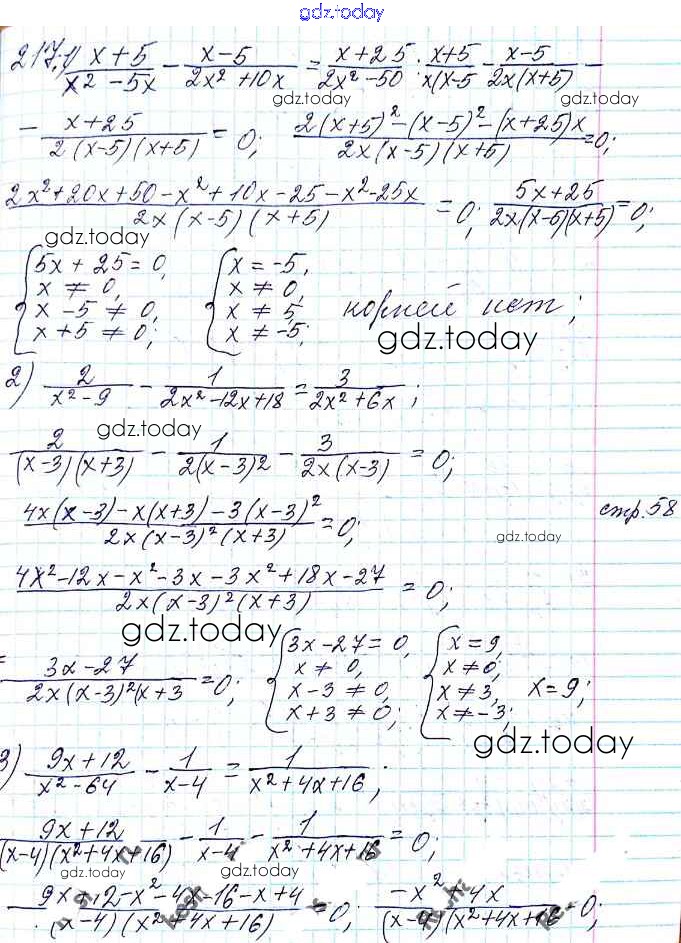 gdz.today
217.1) (x+5)/(x² -5x) - (x-5)/(2x² +10x) = (x+25)/(2x²-50); (x+5)/(x(x-5) - (x-5)/(2x(x+5)) -
gdz.today gdz.today
- (x+25)/(2(x-5)(x+5)) = 0; (2(x+5)²-(x-5)²-(x+25)x)/(2x(x-5)(x+5)) = 0;
(2x²+20x+50-x²+10x-25-x²-25x)/(2x(x-5)(x+5)) = 0; (5x+25)/(2x(x-5)(x+5)) = 0;
gdz.today
{5x+25=0, {x=-5,
x≠0, x≠0,
x-5≠0, x≠5, корней нет;
x+5≠0; x≠-5;
gdz.today
2) 2/(x²-9) - 1/(2x²-12x+18) = 3/(2x²+6x);
gdz.today
2/((x-3)(x+3)) - 1/(2(x-3)2) - 3/(2x(x-3)) = 0;
(4x(x-3)-x(x+3)-3(x-3)²)/(2x(x-3)²(x+3)) = 0; стр.58
gdz.today
(4x²-12x-x²-3x-3x²+18x-27)/(2x(x-3)²(x+3)) = 0;
gdz.today
= (3x-27)/(2x(x-3)²(x+3) = 0; {3x-27=0, {x=9,
x≠0, x≠0,
x-3≠0, x≠3, x=9;
x+3≠0; x≠-3;
gdz.today
3) (9x+12)/(x²-64) - 1/(x-4) = 1/(x²+4x+16);
(9x+12)/((x-4)(x²+4x+16)) - 1/(x-4) - 1/(x²+4x+16) = 0;
gdz.today
(9x+12-x²-4x-16-x+4)/((x-4)(x²+4x+16)) = 0; (-x²+4x)/((x-4)(x²+4x+16 = 0;